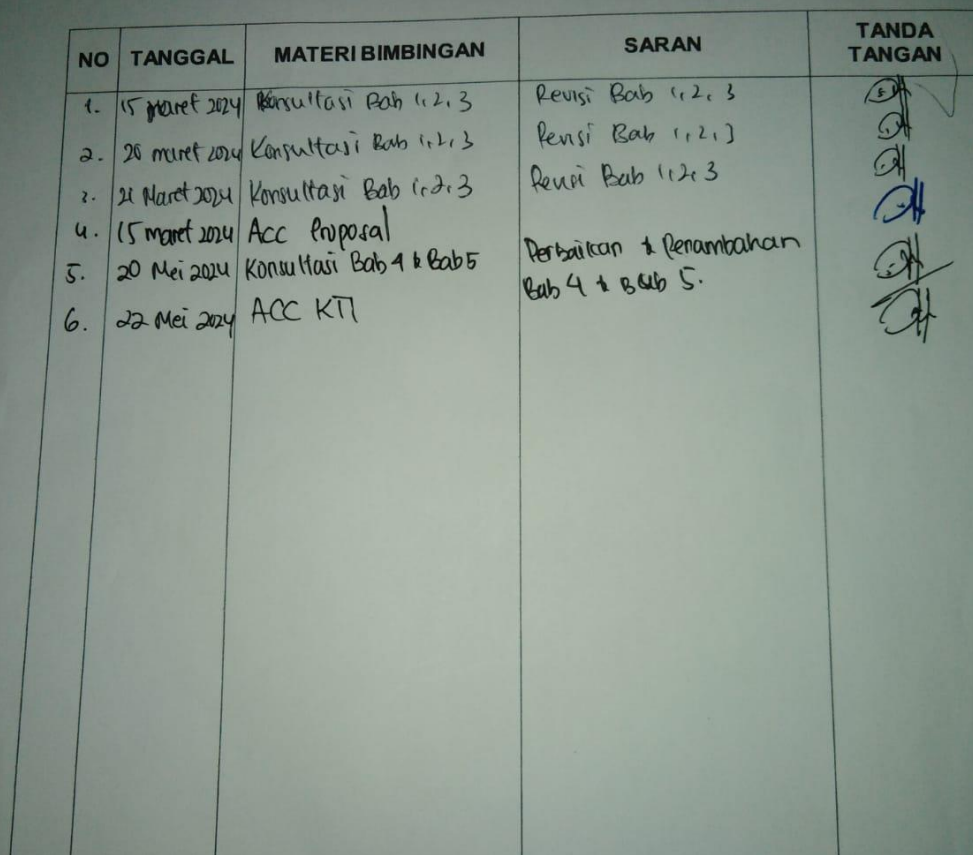 NO TANGGAL MATERI BIMBINGAN SARAN TANDA TANGAN
1. 15 maret 2024 Konsultasi Bab 1, 2, 3 Revisi Bab 1, 2, 3
2. 20 maret 2024 Konsultasi Bab 1, 2, 3 Revisi Bab 1, 2, 3
3. 21 Maret 2024 Konsultasi Bab 1, 2, 3 Revisi Bab 1, 2, 3
4. 15 maret 2024 Acc Proposal
5. 20 Mei 2024 Konsultasi Bab 4 & Bab 5 Perbaikan & Penambahan
Bab 4 & Bab 5.
6. 22 Mei 2024 ACC KTI